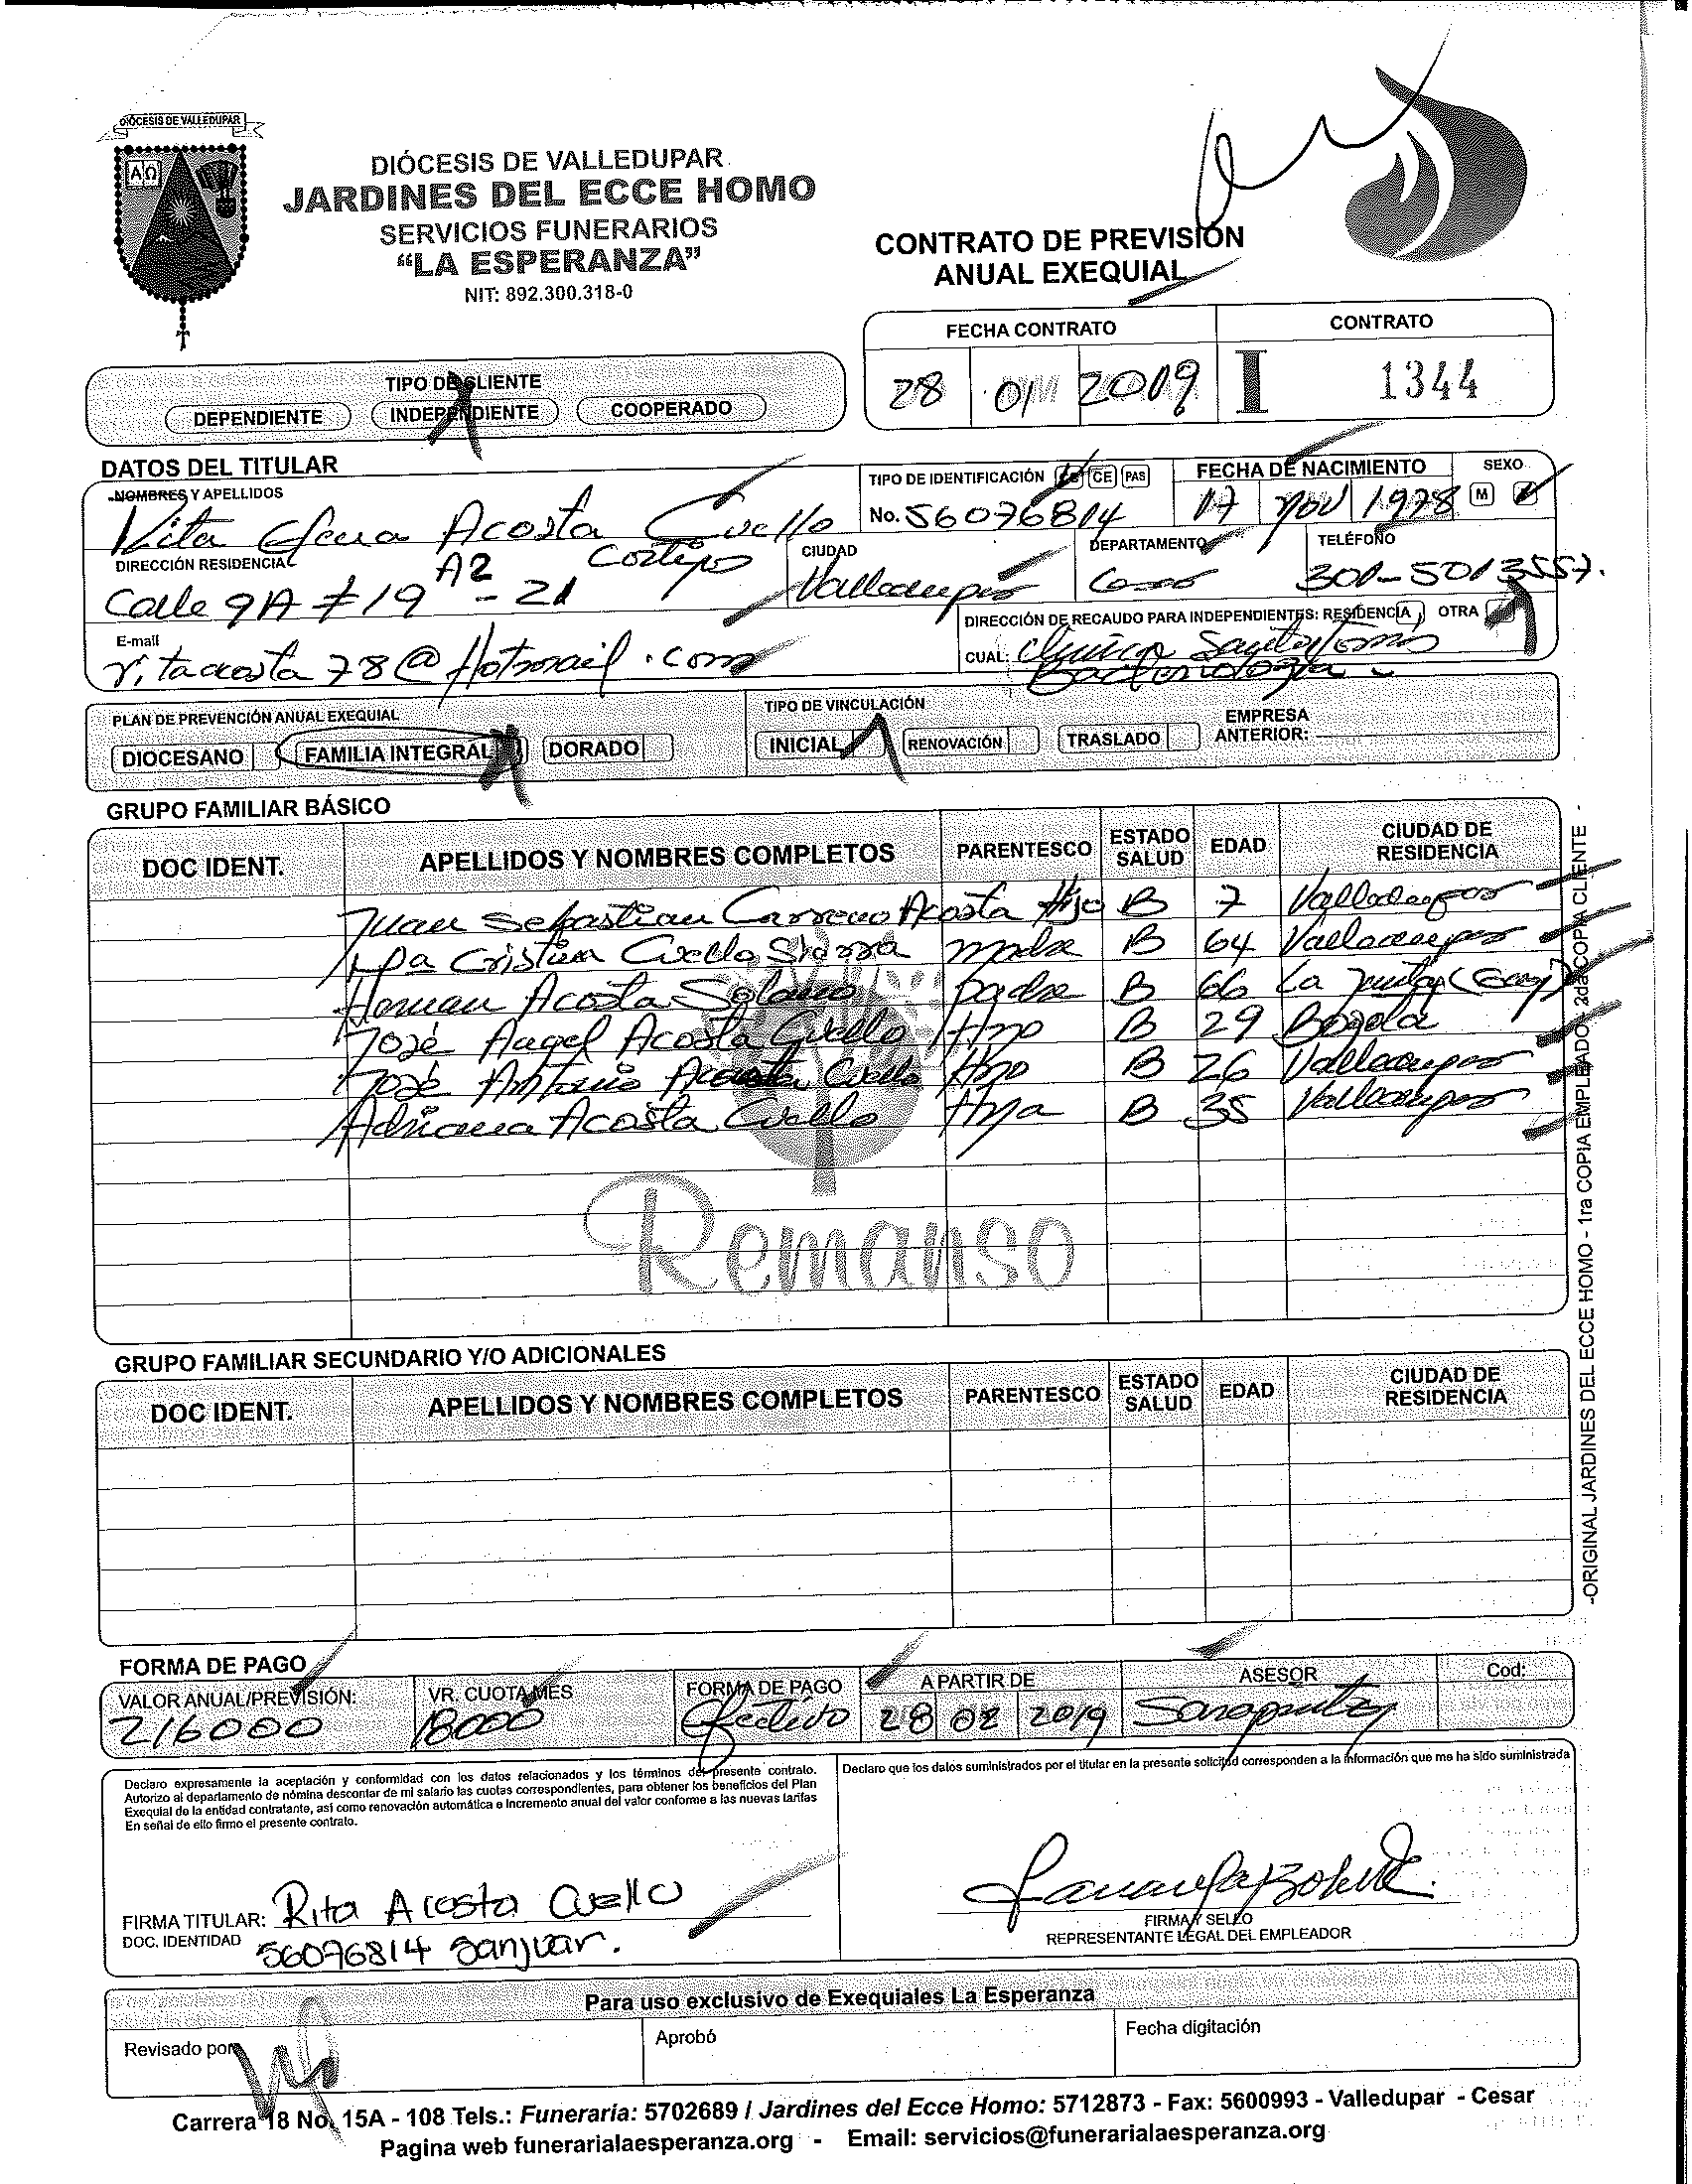 DIÓCESIS DE VALLEDUPAR
ΑΩ
DIÓCESIS DE VALLEDUPAR
JARDINES DEL ECCE HOMO
SERVICIOS FUNERARIOS
“LA ESPERANZA”
NIT: 892.300.318-0
CONTRATO DE PREVISIÓN
ANUAL EXEQUIAL
FECHA CONTRATO CONTRATO
28 01 2019 I 1344
TIPO DE CLIENTE
DEPENDIENTE INDEPENDIENTE COOPERADO
DATOS DEL TITULAR
NOMBRES Y APELLIDOS
Rita Elena Acosta Cuello
TIPO DE IDENTIFICACIÓN CE PAS
No. 56076814
FECHA DE NACIMIENTO
17 Nov 1978
SEXO
M
DIRECCIÓN RESIDENCIA
Calle 9A # 19 A2 - 21
CIUDAD
Valledupar
DEPARTAMENTO
TELÉFONO
300-5013557.
E-mail
ritacosta78@Hotmail.com
DIRECCIÓN DE RECAUDO PARA INDEPENDIENTES: RESIDENCIA OTRA
CUAL: Clinica Santo Tomas
Bacteriologia
PLAN DE PREVENCIÓN ANUAL EXEQUIAL
DIOCESANO FAMILIA INTEGRAL DORADO
TIPO DE VINCULACIÓN
INICIAL RENOVACIÓN TRASLADO
EMPRESA
ANTERIOR:
GRUPO FAMILIAR BÁSICO
DOC IDENT. APELLIDOS Y NOMBRES COMPLETOS PARENTESCO ESTADO SALUD EDAD CIUDAD DE RESIDENCIA
Juan Sebastian Carreno Acosta Hijo B 7 Valledupar
Ma Cristina Cuello Sierra madre B 64 Valledupar
Hernan Acosta Solano padre B 66 La Junta
José Angel Acosta Cuello Hno B 29 Bogota
José Antonio Acosta Cuello Hno B 26 Valledupar
Adriana Acosta Cuello Hna B 35 Valledupar
Remanso
GRUPO FAMILIAR SECUNDARIO Y/O ADICIONALES
DOC IDENT. APELLIDOS Y NOMBRES COMPLETOS PARENTESCO ESTADO SALUD EDAD CIUDAD DE RESIDENCIA
-ORIGINAL JARDINES DEL ECCE HOMO - 1ra COPIA EMPLEADO 2da COPIA CLIENTE -
FORMA DE PAGO
VALOR ANUAL/PREVISIÓN: VR. CUOTA MES FORMA DE PAGO A PARTIR DE ASESOR Cod:
216000 18000 Efectivo 28 02 2019
Declaro expresamente la aceptación y conformidad con los datos relacionados y los términos del presente contrato.
Autorizo al departamento de nómina descontar de mi salario las cuotas correspondientes, para obtener los beneficios del Plan
Exequial de la entidad contratante, así como renovación automática e incremento anual del valor conforme a las nuevas tarifas
En señal de ello firmo el presente contrato.
Declaro que los datos suministrados por el titular en la presente solicitud corresponden a la información que me ha sido suministrada
FIRMA TITULAR: Rita Acosta Cuello
DOC. IDENTIDAD 56076814 Sanjuar.
FIRMA Y SELLO
REPRESENTANTE LEGAL DEL EMPLEADOR
Para uso exclusivo de Exequiales La Esperanza
Revisado por Aprobó Fecha digitación
Carrera 18 No. 15A - 108 Tels.: Funeraria: 5702689 / Jardines del Ecce Homo: 5712873 - Fax: 5600993 - Valledupar - Cesar
Pagina web funerarialaesperanza.org - Email: servicios@funerarialaesperanza.org